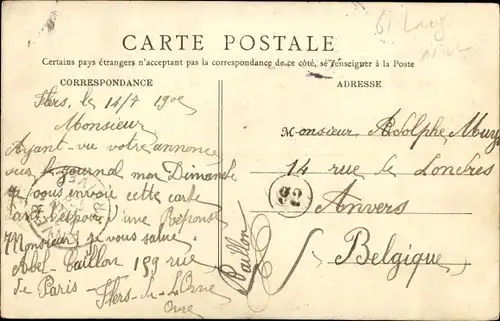 CARTE POSTALE
Certains pays étrangers n'acceptant pas la correspondance de ce côté, se renseigner à la Poste
CORRESPONDANCE
Flers, le 14/7 190
Monsieur
Ayant vu votre annonce
sur le journal mon Dimanche
je vous envoi cette carte
dans l'espoir d'une Réponse
Monsieur je vous salue
Abel Taillon 189 rue
de Paris - Flers-de-L'Orne
Orne
Taillon
ADRESSE
Monsieur Adolphe
14 rue de Londres
92
Anvers
Belgique
61